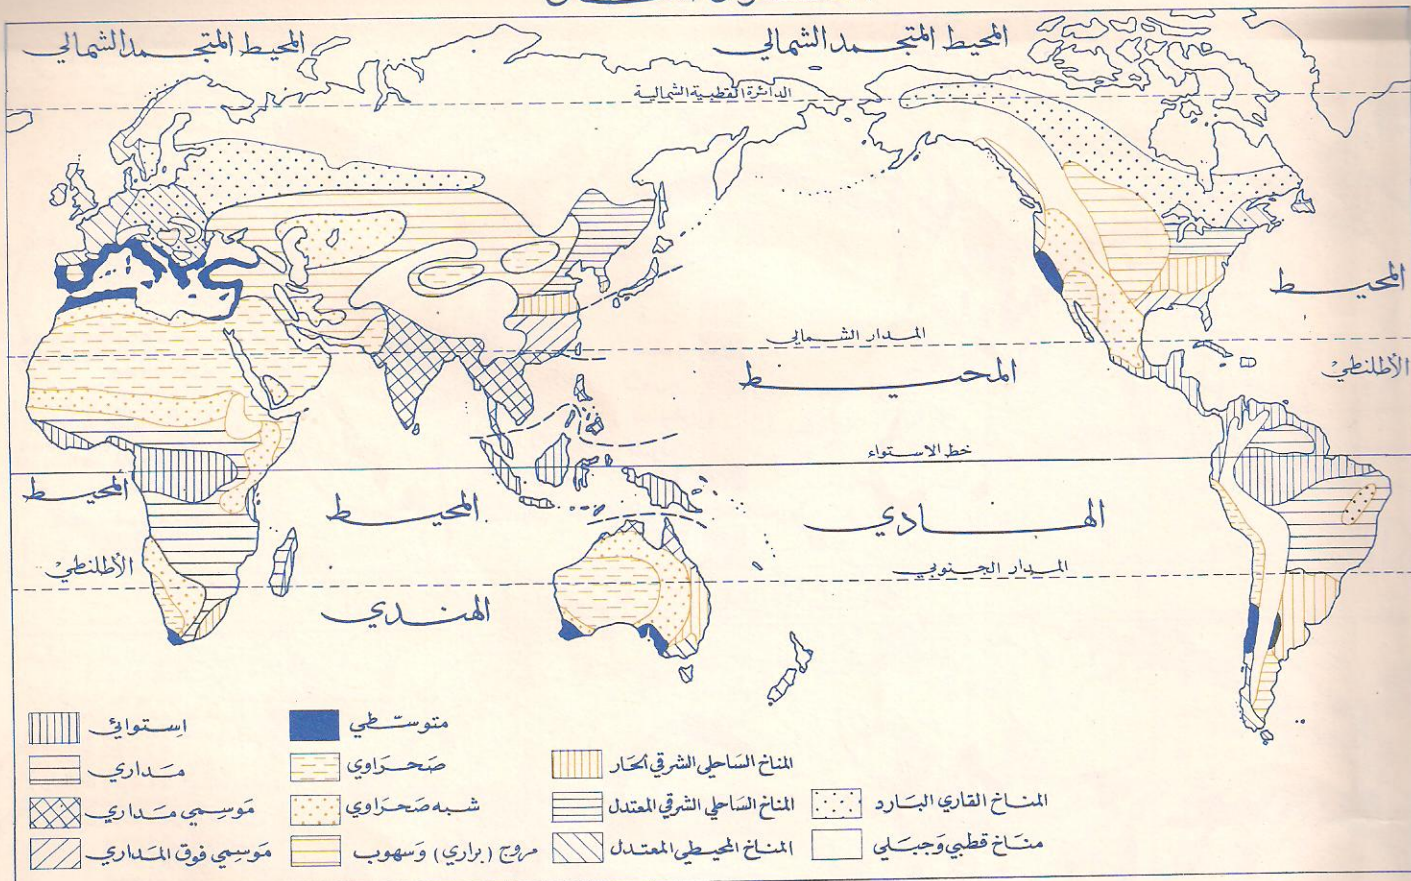 المحيط المتجمد الشمالي
المحيط المتجمد الشمالي
الدائرة القطبية الشمالية
المحيط
الأطلنطي
المدار الشمالي
المحيط
الهادي
خط الاستواء
المحيط
الأطلنطي
المحيط
الهندي
المدار الجنوبي
إستوائي
مداري
موسمي مداري
موسمي فوق المداري
متوسّطي
صحراوي
شبه صحراوي
مروج (براري) وسهوب
المناخ الساحلي الشرقي الحار
المناخ الساحلي الشرقي المعتدل
المناخ المحيطي المعتدل
المناخ القاري البارد
مناخ قطبي وجبلي